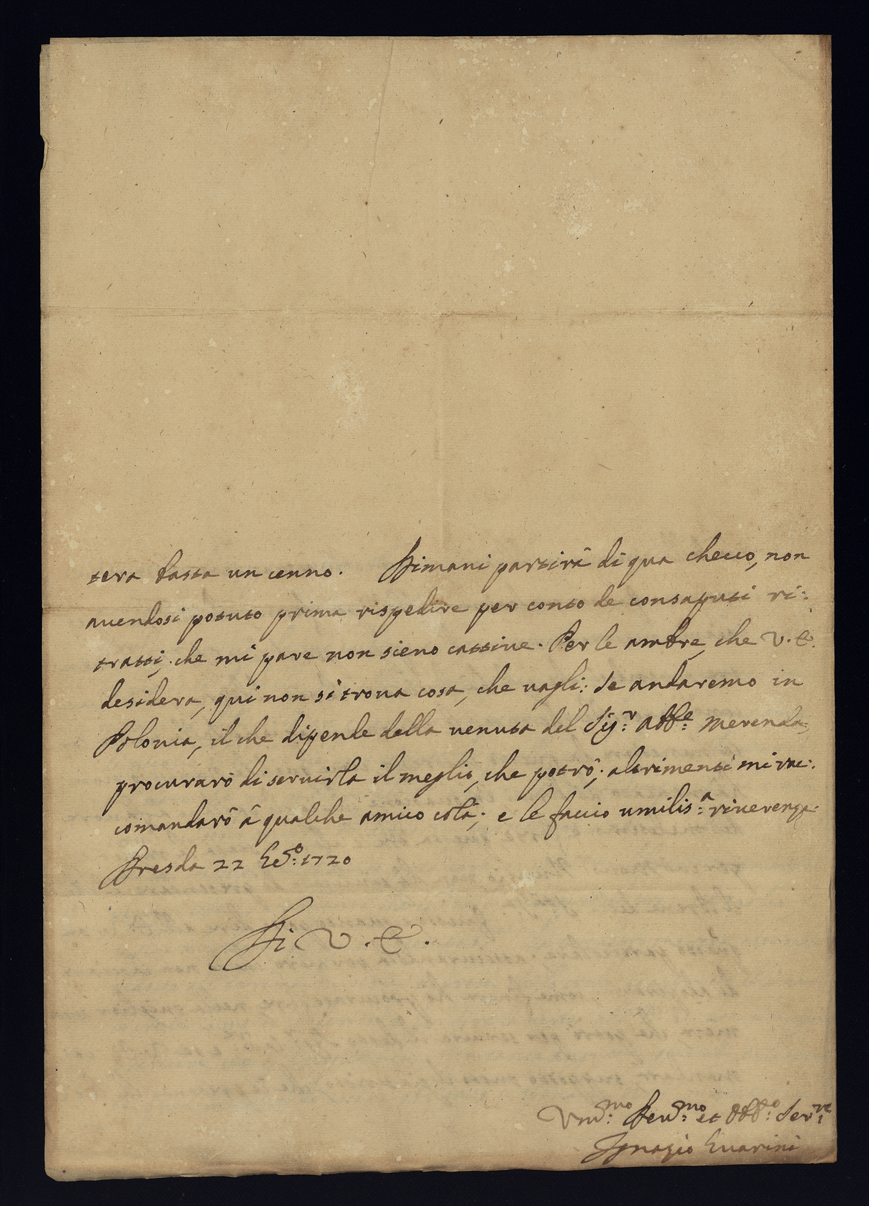 tera basta un cenno. Dimani partirà di qua checco, non
auendosi potuto prima rispedire per conto de consaputi ri:
tratti, che mi pare non sieno cattiue. Per le ambre, che V. E.
desidera, qui non si troua cosa, che uagli: se andaremo in
Polonia, il che dipende dalla uenuta del Sig.r Abb.e Merenda,
procurarò di seruirla il meglio, che potrò; altrimenti mi rac:
comandarò à qualche amico colà; e le faccio umilis.a riuerenza.
Dresda 22 1720
Di V. E.
Um.mo Deu.mo et Obb.o Ser.re
Ignazio Guarini